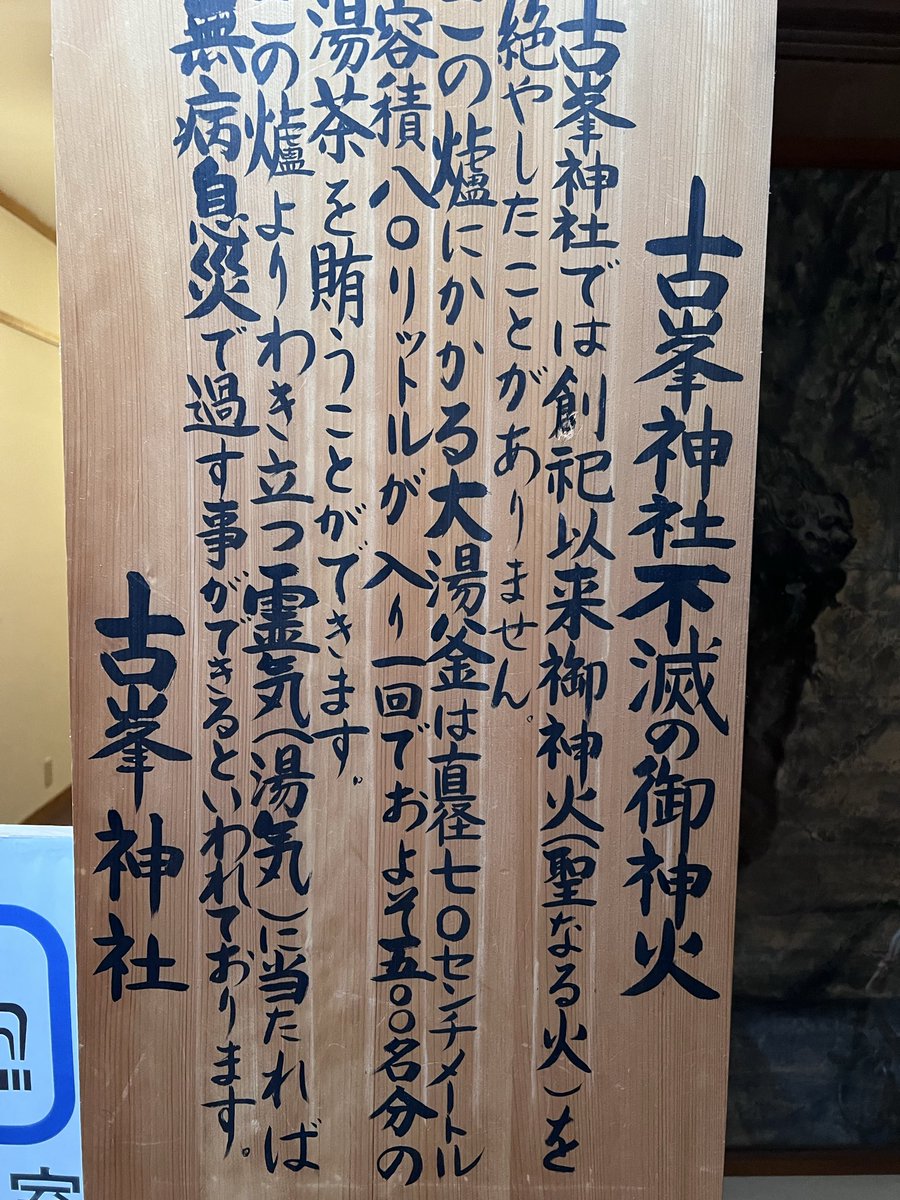 古峯神社不滅の御神火
古峯神社では創祀以来御神火(聖なる火)を
絶やしたことがありません。
この爐にかかる大湯釜は直径七〇センチメートル
容積八〇リットルが入り一回でおよそ五〇〇名分の
湯茶を賄うことができます。
この爐よりわき立つ霊気(湯気)に当たれば
無病息災で過す事ができるといわれております。
古峯神社